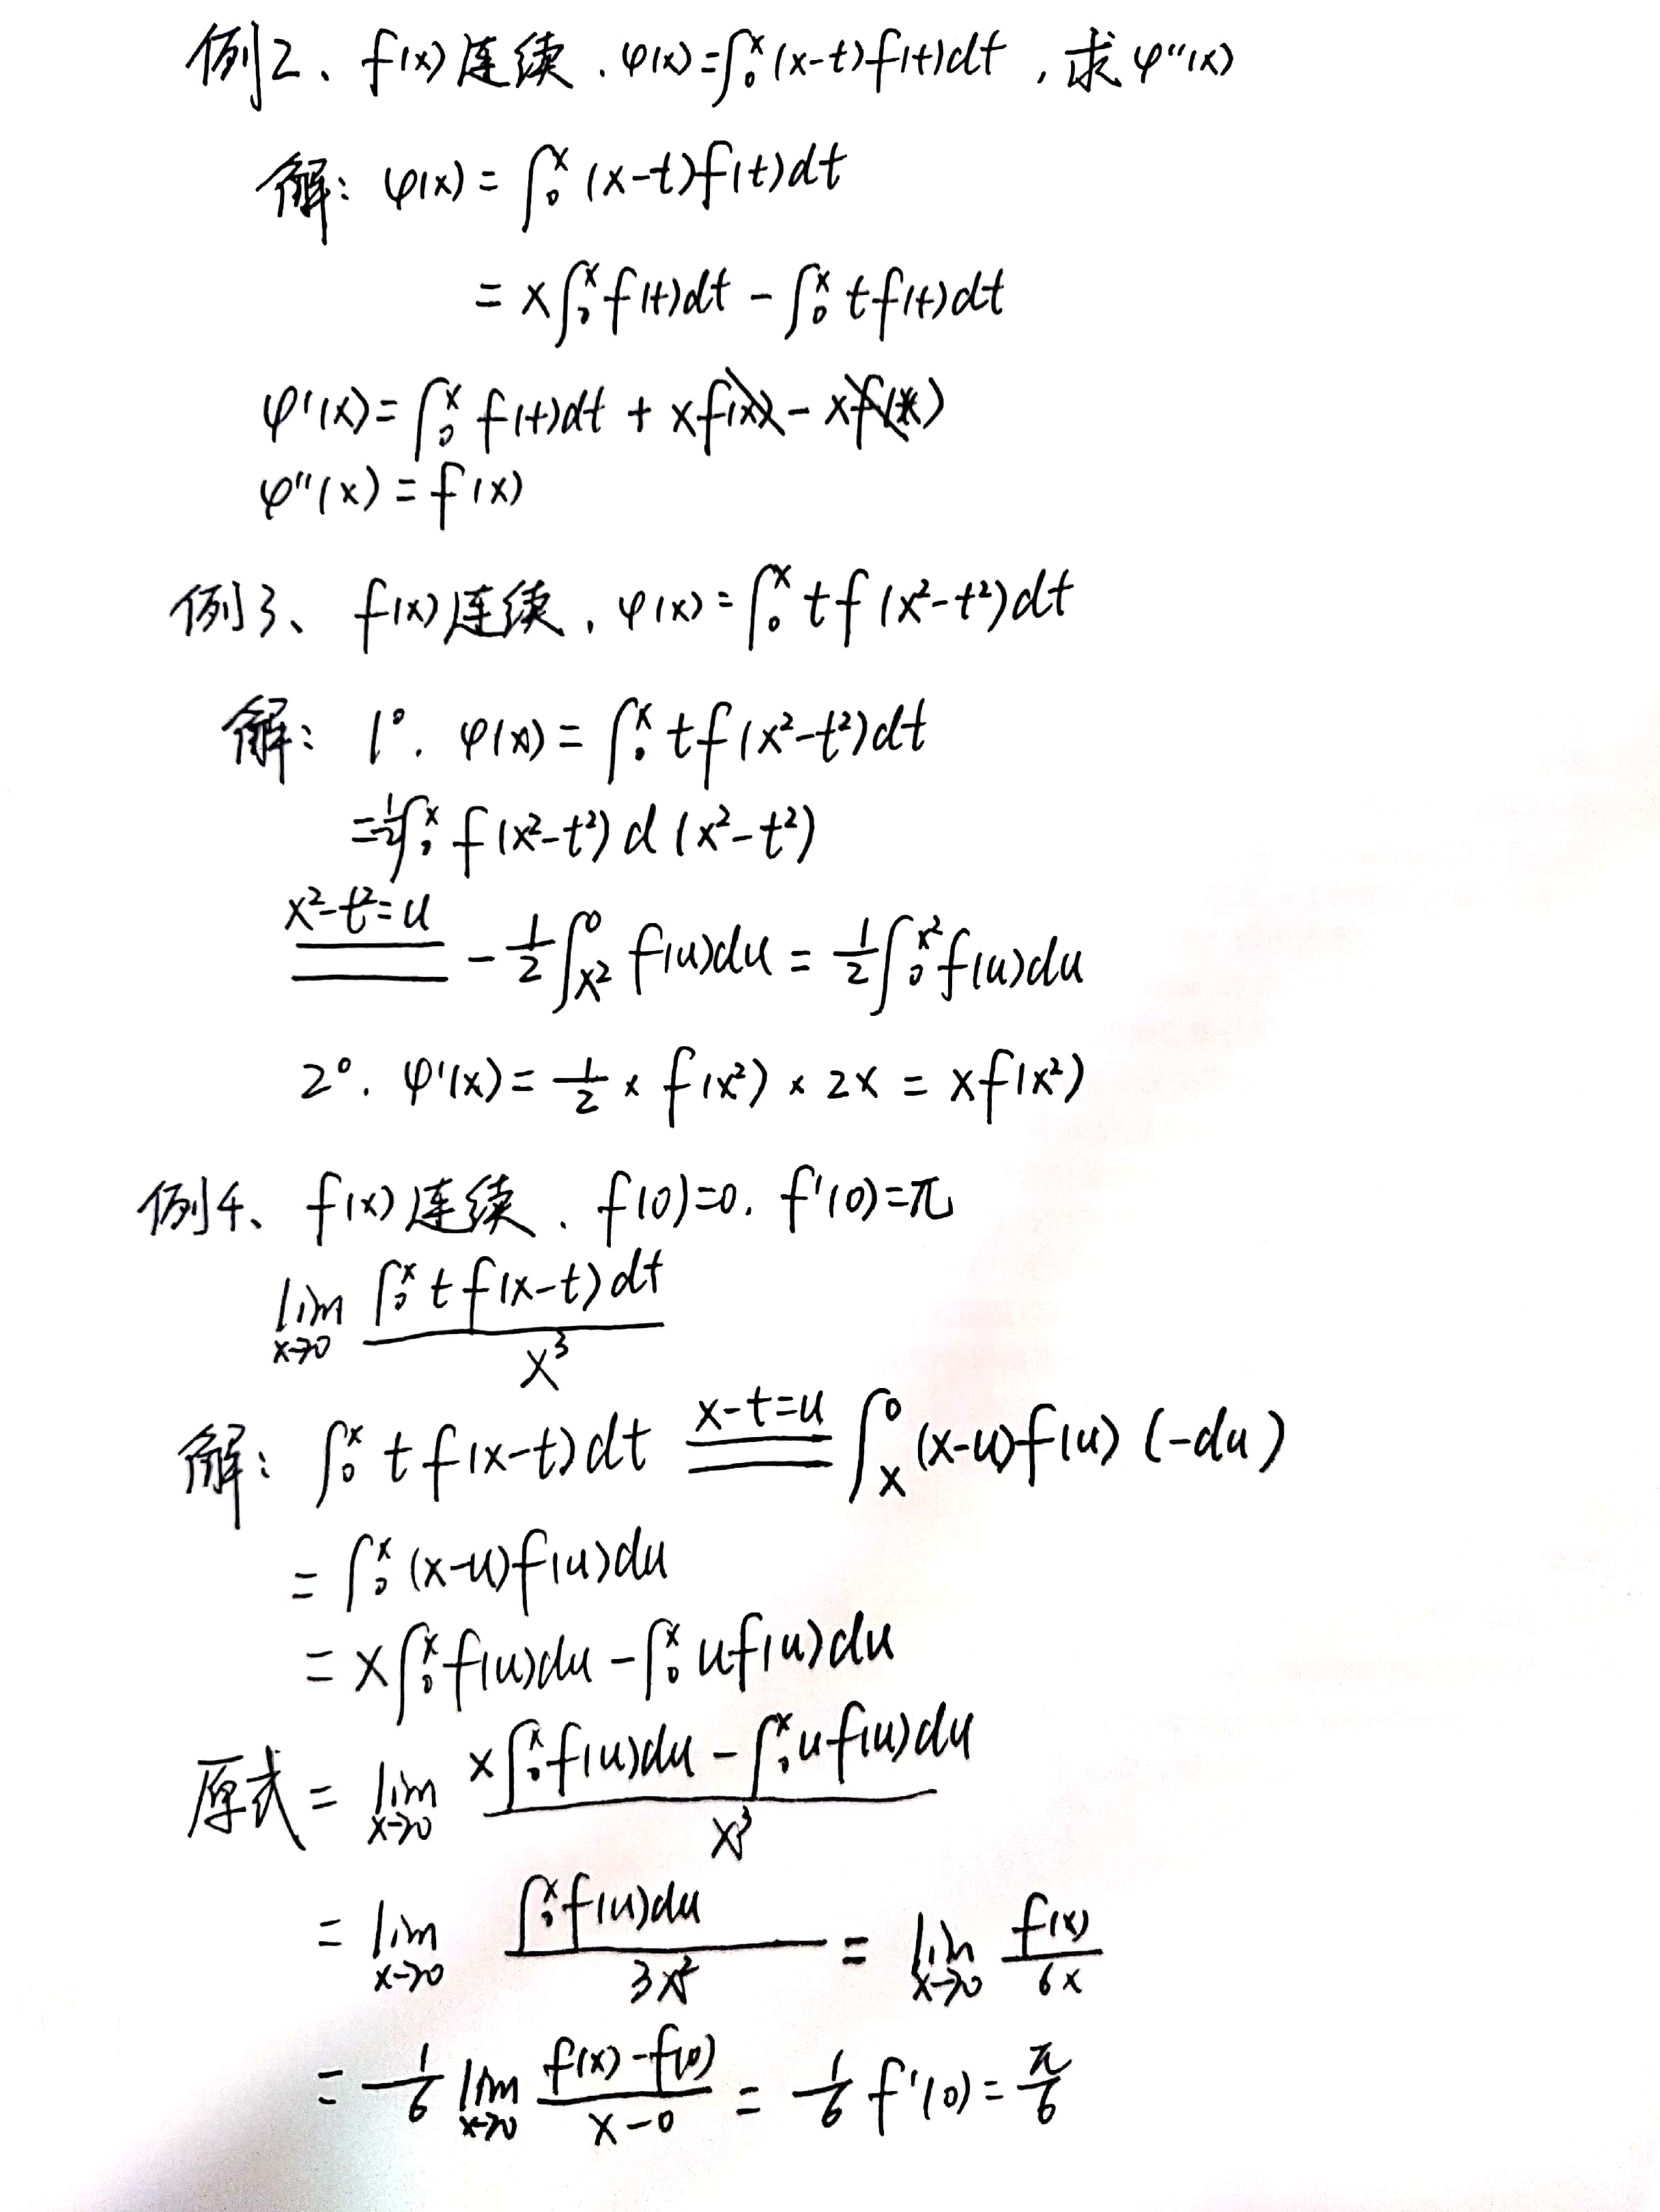 例2、f(x)连续.φ(x)=∫₀ˣ(x-t)f(t)dt,求φ''(x)
解: φ(x)=∫₀ˣ(x-t)f(t)dt
=x∫₀ˣf(t)dt-∫₀ˣtf(t)dt
φ'(x)=∫₀ˣf(t)dt+xf(x)-xf(x)
φ''(x)=f(x)
例3、f(x)连续.φ(x)=∫₀ˣtf(x²-t²)dt
解: 1°. φ(x)=∫₀ˣtf(x²-t²)dt
=½∫₀ˣf(x²-t²)d(x²-t²)
x²-t²=u
-\frac{1}{2}\int_{x²}^{0}f(u)du=\frac{1}{2}\int_{0}^{x²}f(u)du
2°. φ'(x)=\frac{1}{2}×f(x²)×2x=xf(x²)
例4、f(x)连续.f(0)=0.f'(0)=π
\lim_{x→0}\frac{\int_{0}^{x}tf(x-t)dt}{x³}
解: ∫₀ˣtf(x-t)dt \xlongequal{x-t=u} \int_{x}^{0}(x-u)f(u)(-du)
=∫₀ˣ(x-u)f(u)du
=x∫₀ˣf(u)du-∫₀ˣuf(u)du
原式=\lim_{x→0}\frac{x\int_{0}^{x}f(u)du-\int_{0}^{x}uf(u)du}{x³}
=\lim_{x→0}\frac{\int_{0}^{x}f(u)du}{3x²}=\lim_{x→0}\frac{f(x)}{6x}
=\frac{1}{6}\lim_{x→0}\frac{f(x)-f(0)}{x-0}=\frac{1}{6}f'(0)=\frac{π}{6}